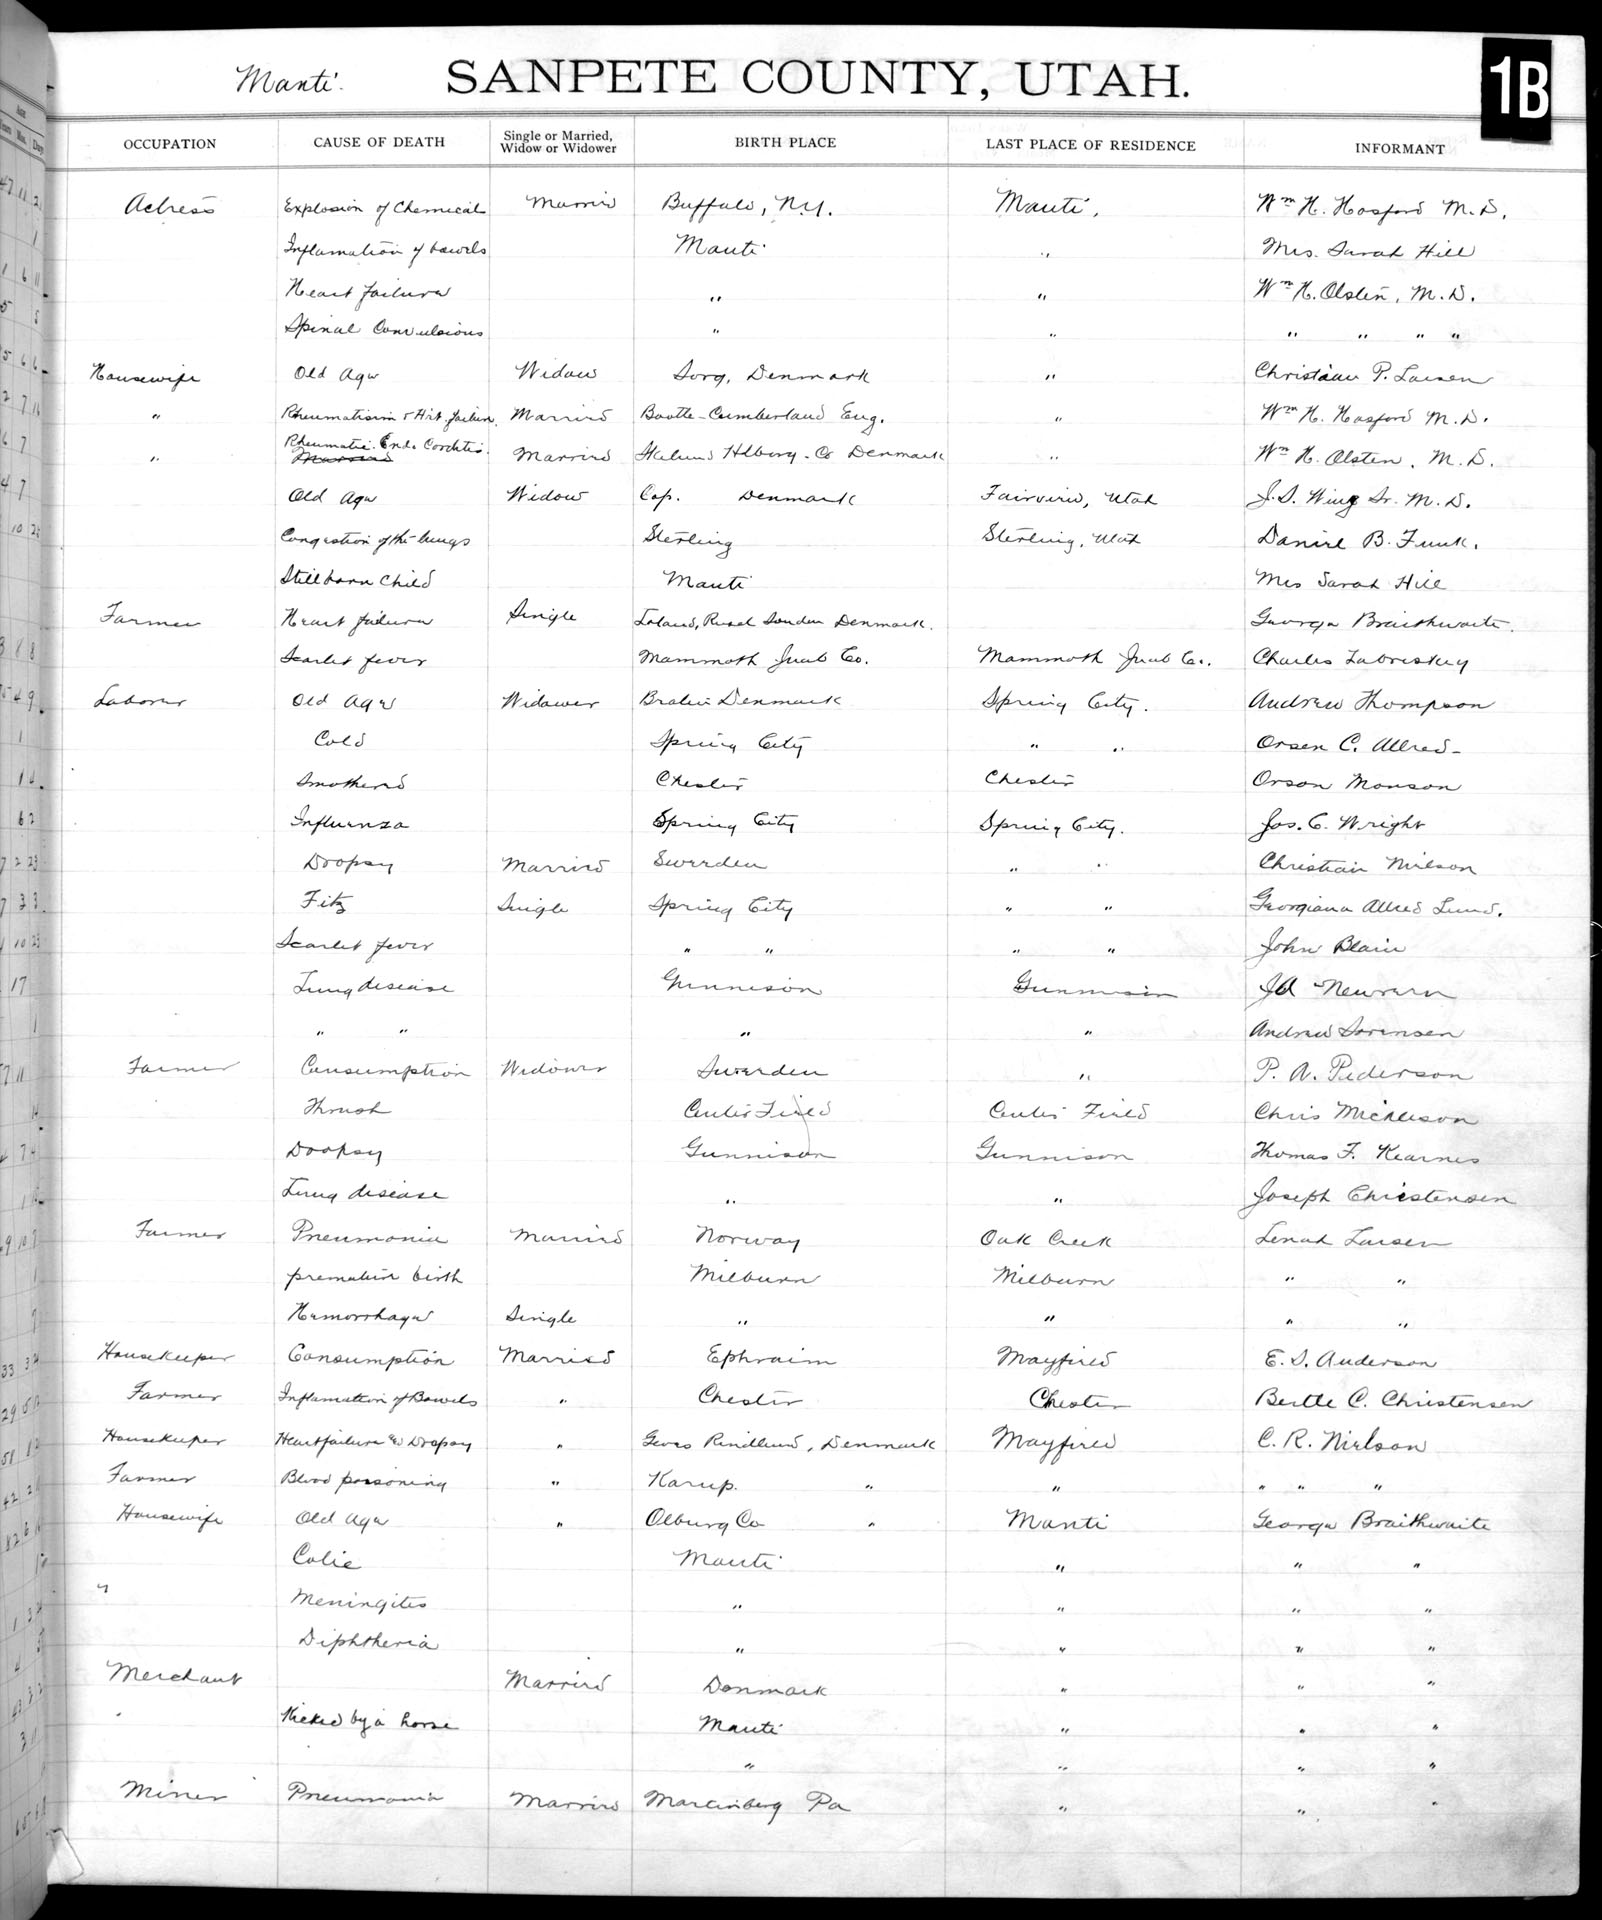 Manti. SANPETE COUNTY, UTAH. 1B
OCCUPATION CAUSE OF DEATH Single or Married, Widow or Widower BIRTH PLACE LAST PLACE OF RESIDENCE INFORMANT
Actress Explosion of Chemical Married Buffalo, N.Y. Manti, Wm H. Hosford M.D.
Inflamation of bowels Manti " Mrs. Sarah Hill
Heart failure " " Wm H. Olsten, M.D.
Spinal Convulsions " " " " " "
Housewife Old Age Widow Denmark " Christian P. Larsen
" Rheumatisim & Hrt. failure Married Bootle-Cumberland Eng. " Wm H. Hosford M.D.
" Rheumatic. Endo Corditis. Married Denmark " Wm H. Olsten. M.D.
Old Age Widow Cop. Denmark Fairview, Utah J.S. Wing Sr. M.D.
Congestion of the lungs Sterling Sterling, Utah Daniel B. Funk.
Stillborn child Manti Mrs Sarah Hill
Farmer Heart failure Single Denmark. George Braithwaite.
Scarlet fever Mammoth Juab Co. Mammoth Juab Co. Charles Labriskey
Laborer Old Age Widower Denmark Spring City. Andrew Thompson
Cold Spring City " " Orsen C. Allred-
Smothered Chester Chester Orson Monson
Influenza Spring City Spring City. Jos. C. Wright
Doopsy Married Sweeden " " Christian Nielson
Fitz Single Spring City " " Georgiana Allred Lund.
Scarlet fever " " " " John Blain
Lung disease Gunnison Gunnison JA
" " " " Andrew Sorensen
Farmer Consumption Widower Sweeden " P. A. Pederson
Thrush Center Field Center Field Chris Mickelson
Doopsy Gunnison Gunnison Thomas F. Kearnes
Lung disease " " Joseph Christensen
Farmer Pneumonia Married Norway Oak Creek Lenah Larsen
premature birth Milburn Milburn " "
Hemorrhage Single " " " "
Housekeeper Consumption Married Ephraim Mayfield E. S. Anderson
Farmer Inflamation of Bowels " Chester Chester Bertle C. Christensen
Housekeeper Heart failure & Doopsy " Denmark Mayfield C. R. Nielson
Farmer Blood poisoning " Karup. " " " " "
Housewife Old Age " Olburg Co " Manti George Braithwaite
Colic Manti " " "
" Meningites " " " "
Diphtheria " " " "
Merchant Married Denmark " " "
Kicked by a horse Manti " " "
" " " "
Miner Pneumonia Married Martinberg Pa " " "